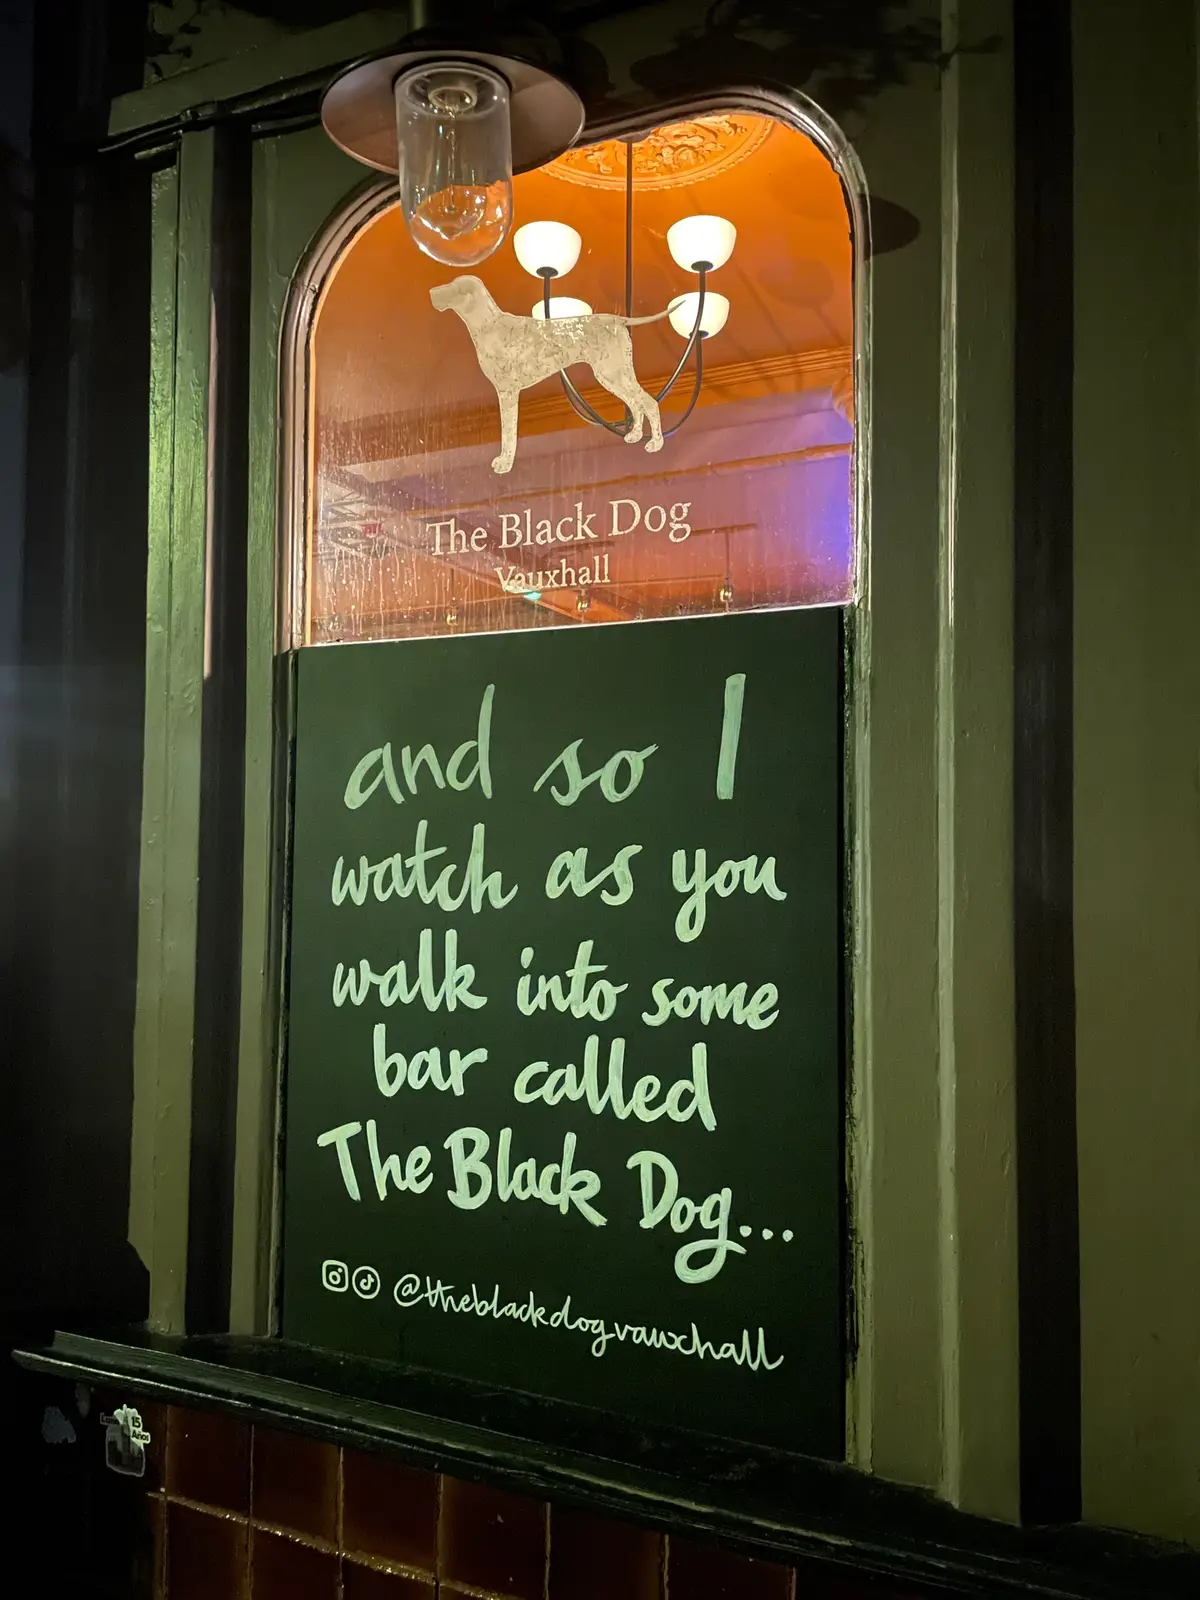 The Black Dog
Vauxhall
and so I
watch as you
walk into some
bar called
The Black Dog...
@theblackdogvauxhall
15
Años